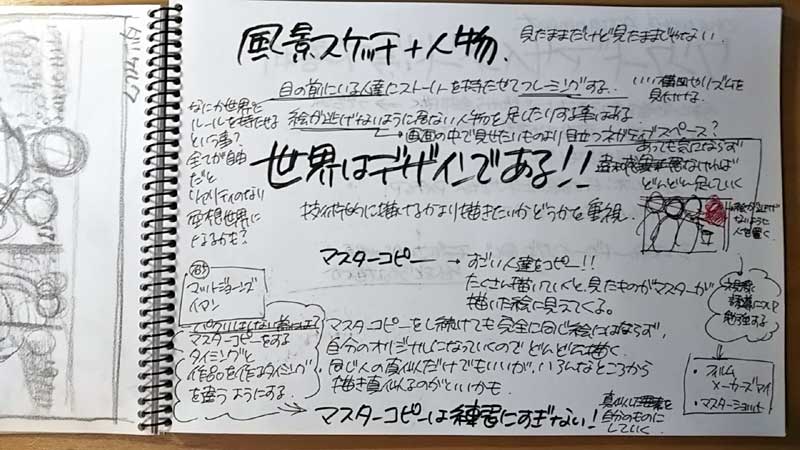 風景スケッチ+人物.
見たままだけど見たままじゃない.
目の前にいる人達にストーリーを持たせてフレーミングする.
いい構図やリズムを
見つける.
なにか世界を
ルールを持たせる
という事?
全てが自由
だと
リアリティのない
空想世界に
なるかも?
絵が逃げないように居ない人物を足したりする事はある.
→画面の中で見せたいものより目立つネガティブスペース?
世界はデザインである!!
あっても気にならず
なければ
どんどん足していく
技術的に描けるかより描きたいかどうかを重視.
絵が逃げ
ないように
人を置く.
マスターコピー → すごい人達をコピー!!
たくさん描いていくと、見たものがマスターが
描いた絵に見えてくる.
マットジョーンズ
イマン
マスターコピーをする
タイミングと
作品を作るタイミング
を違うようにする
マスターコピーをし続けても完全に同じ絵にはならず,
自分のオリジナルになっていくのでどんどん描く.
同じ人の真似だけでもいいが、いろんなところから
描き真似るのがいいかも.
誘導について
勉強する
・フィルム
メーカーズアイ
・マスターショット
マスターコピーは練習にすぎない!
真似した要素を
自分のものに
していく.